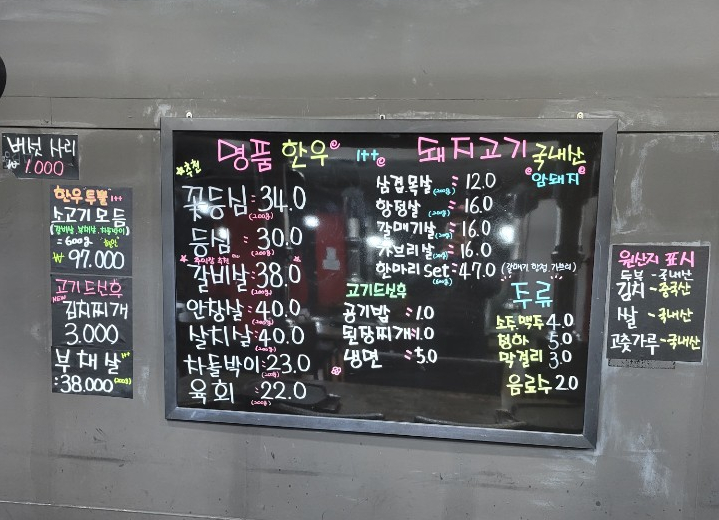 버섯 사리
₩ 1.000
한우 투뿔 1++
소고기 모듬
(갈비살, 부채살, 차돌박이)
= 600g
₩ 97.000
고기드신후
NEW 김치찌개
3.000
부채살 1++
:38.000 (200g)
명품 한우 1++
추천
꽃등심:34.0
(200g)
등심 : 30.0
(200g)
갈비살:38.0
(200g)
안창살:40.0
(200g)
살치살:40.0
(200g)
차돌박이:23.0
(200g)
육회 :22.0
(200g)
돼지고기 국내산
암돼지
삼겹.목살(200g) : 12.0
항정살(200g) : 16.0
갈매기살(200g) : 16.0
가브리살(200g) : 16.0
한마리 set : 47.0 (갈매기 항정 가브리)
(600g)
고기드신후
공기밥 :1.0
된장찌개:1.0
냉면 :5.0
주류
소주,맥주 4.0
청하 5.0
막걸리 3.0
음료수 2.0
원산지 표시
두부 - 국내산
김치 - 중국산
쌀 - 국내산
고춧가루 - 국내산